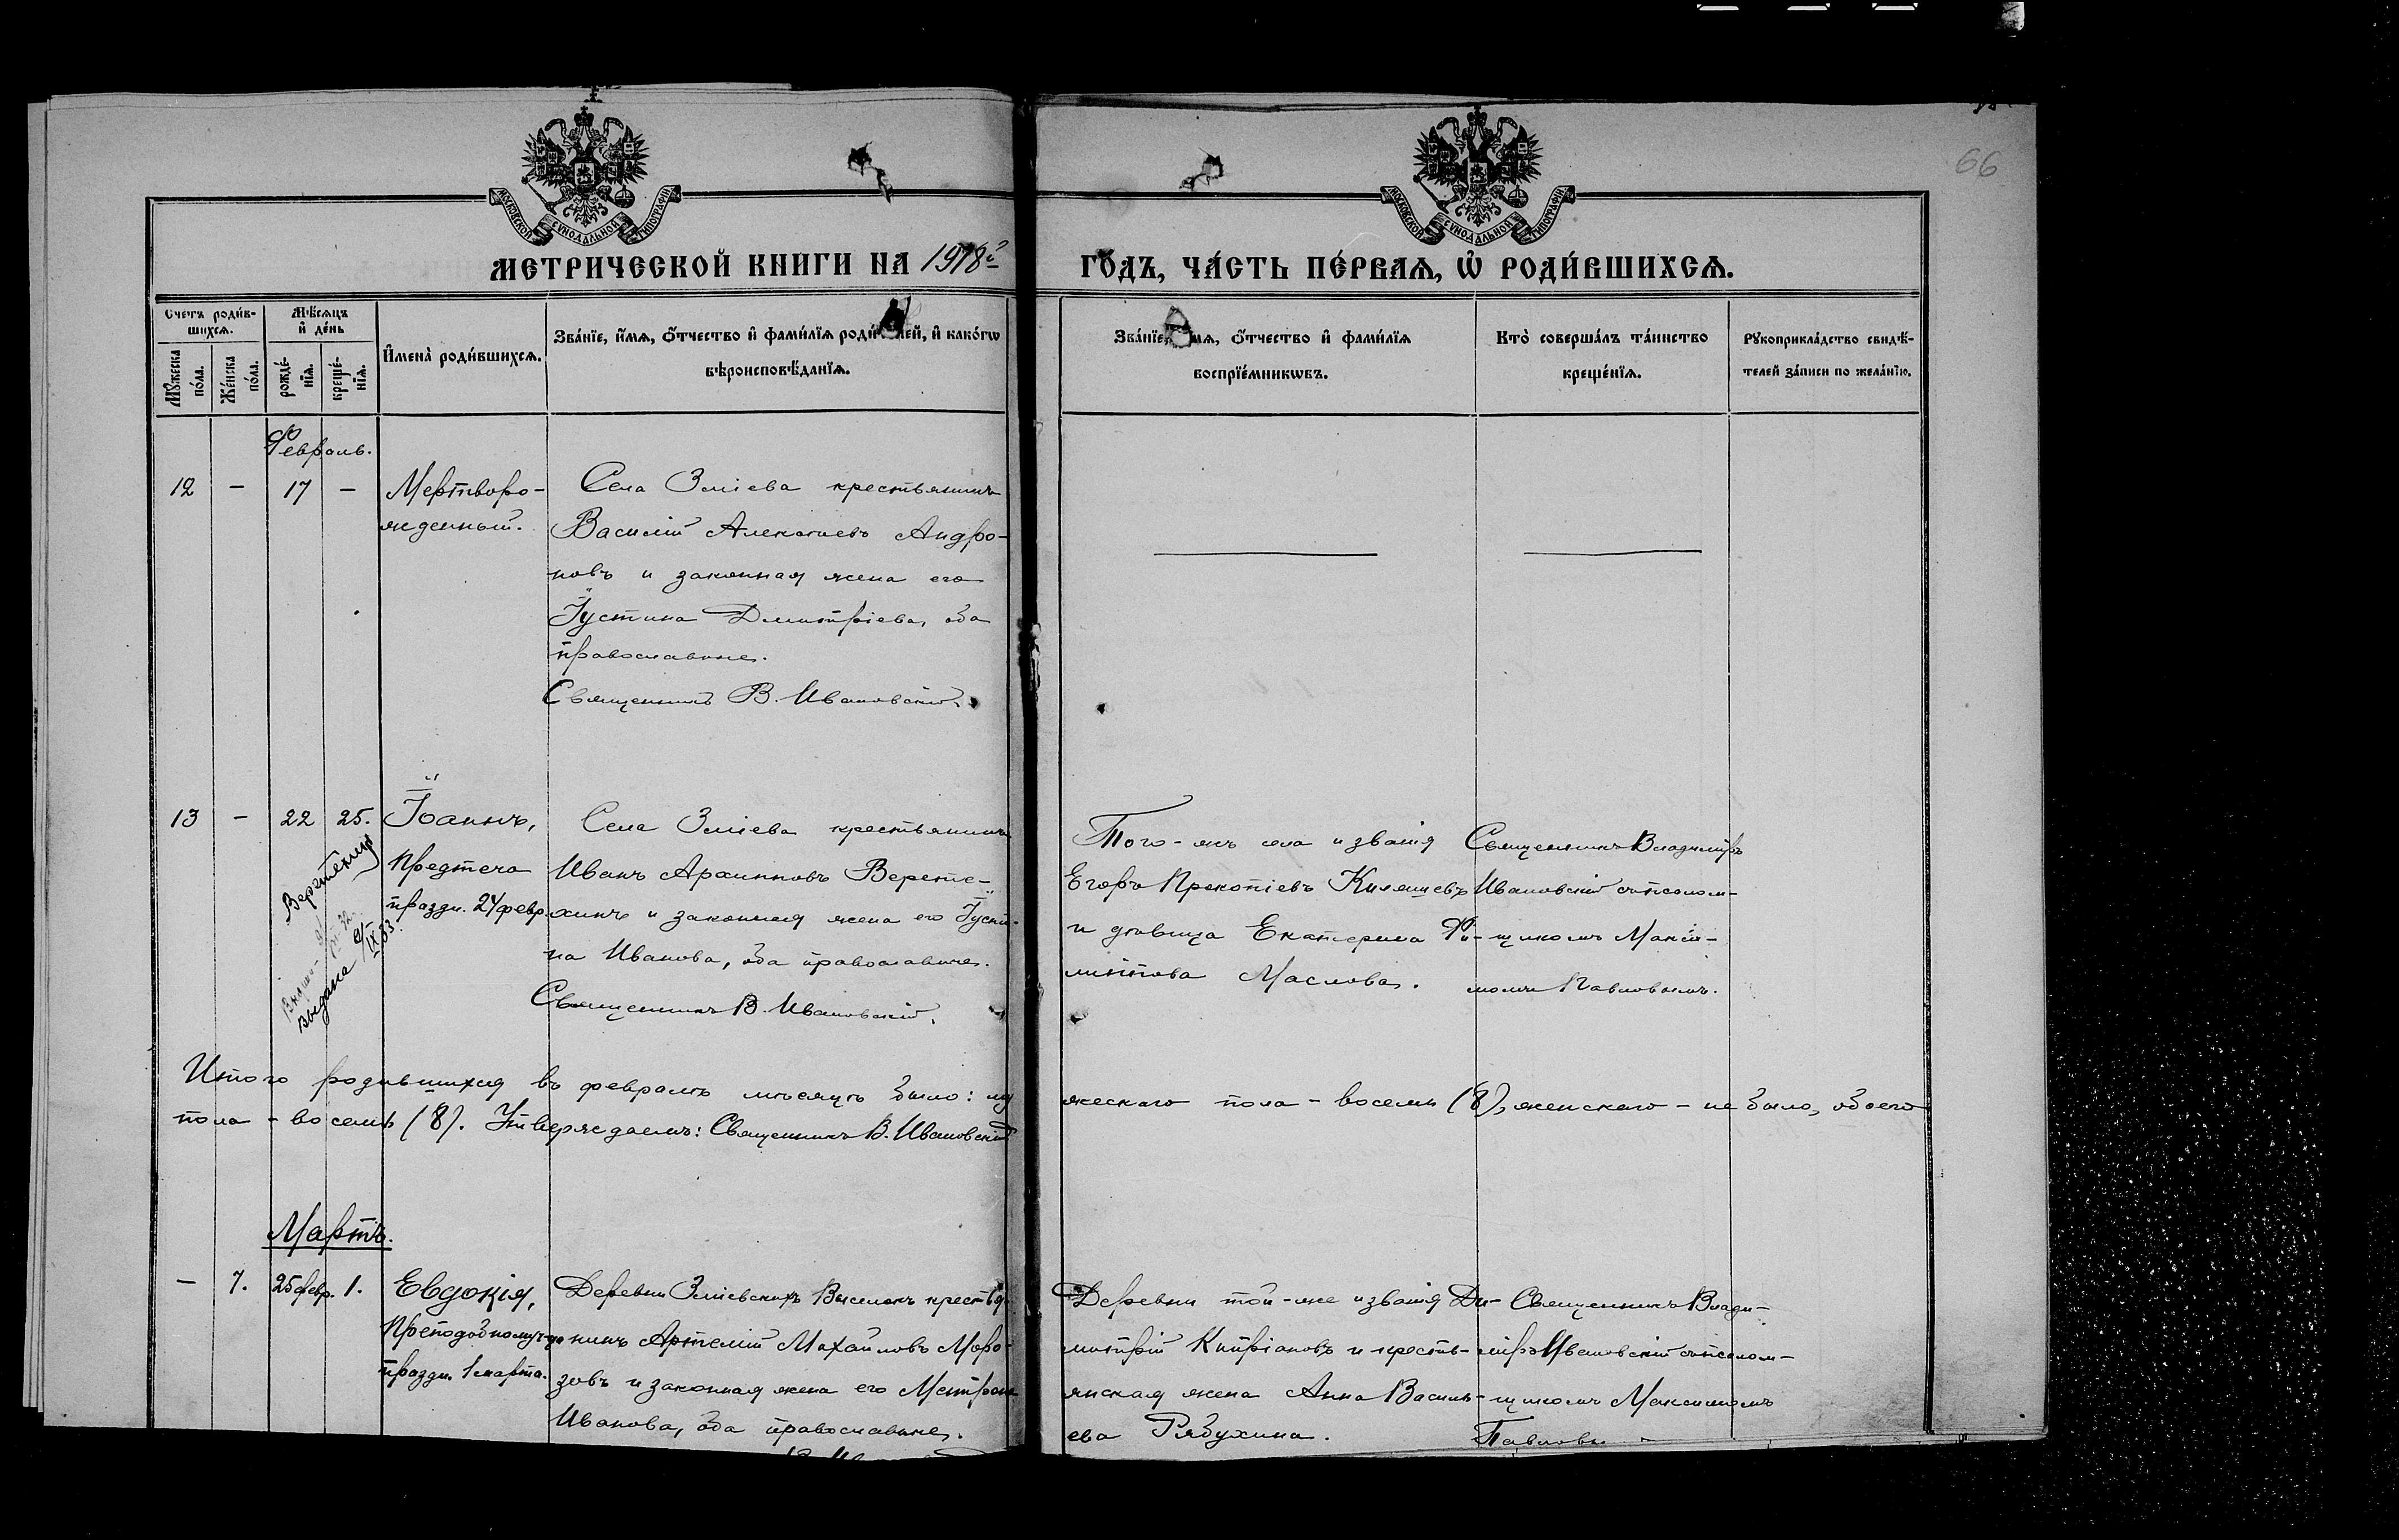 66
МОСКОВСКОЙ СѴНОДАЛЬНОЙ ТИПОГРАФІИ
МОСКОВСКОЙ СѴНОДАЛЬНОЙ ТИПОГРАФІИ
МЕТРИЧЕСКОЙ КНИГИ НА 1918й
ГО́ДЪ, ЧА́СТЬ ПЕ́РВАѦ, Ѽ РОДИ́ВШИХСѦ.
Счетъ роди́в-
шихсѧ.
Мꙋжеска
по́ла.
Же́нска
по́ла.
Мѣ́сѧцъ
и҆ де́нь
рожде́-
нїѧ.
креще́-
нїѧ.
И҆мена̀ роди́вшихсѧ.
Зва́нїе, и҆́мѧ, ѻ҆́тчество и҆ фами́лїѧ роди́телей, и҆ како́гѡ
вѣроисповѣ́данїѧ.
Зва́нїе, и҆́мѧ, ѻ҆́тчество и҆ фами́лїѧ
воспрїе́мникѡвъ.
Кто̀ соверша́лъ та́инство
креще́нїѧ.
Рꙋкоприкла́дство свидѣ́-
телей за́писи по жела́нїю.
Февраль.
12 - 17 -
Мертворо-
жденный.
Села Змiева крестьянинъ
Василiй Алексѣевъ Андро-
новъ и законная жена его
Іустина Дмитрiева, оба
православные.
Священникъ В. Ивановскiй.
13 - 22 25.
Іоаннъ,
Предтеча
праздн. 24 февр.
Веретехин
выдана 9/IX 33
Села Змiева крестьянинъ
Иванъ Архиповъ Верете-
хинъ и законная жена его Іусти-
на Иванова, оба православные.
Священникъ В. Ивановскiй.
Того-жъ села и званiя
Егоръ Прокопiевъ Киляшевъ
и дѣвица Екатерина Фи-
липпова Маслова.
Священникъ Владимiръ
Ивановскiй съ псалом-
щикомъ Макси-
момъ Павловымъ.
Итого родившихся въ февралѣ мѣсяцѣ было: му
жескаго пола - восемь (8), женскаго - не было, обоего
пола - восемь (8). Утверждаемъ: Священникъ В. Ивановскiй
Мартъ.
- 7. 25 февр. 1.
Евдокiя,
Преподобномуч-ца
праздн. 1 марта.
Деревни Змiевскихъ Выселокъ крестья
нинъ Артемiй Михаиловъ Моро-
зовъ и законная жена его Матрона
Иванова, оба православные.
Деревни той-же и званiя Ди-
митрiй Кипрiановъ и кресть-
янская жена Анна Василь-
ева Рябухина.
Священникъ Влади-
мiръ Ивановскiй съ псалом-
щикомъ Максимомъ